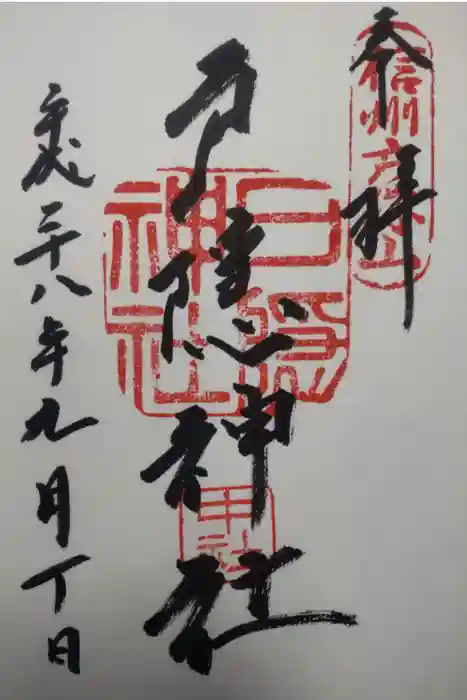 奉拝
信州戸隠山
戸隠神社
戸隠
神社
中社
平成二十八年九月丁日